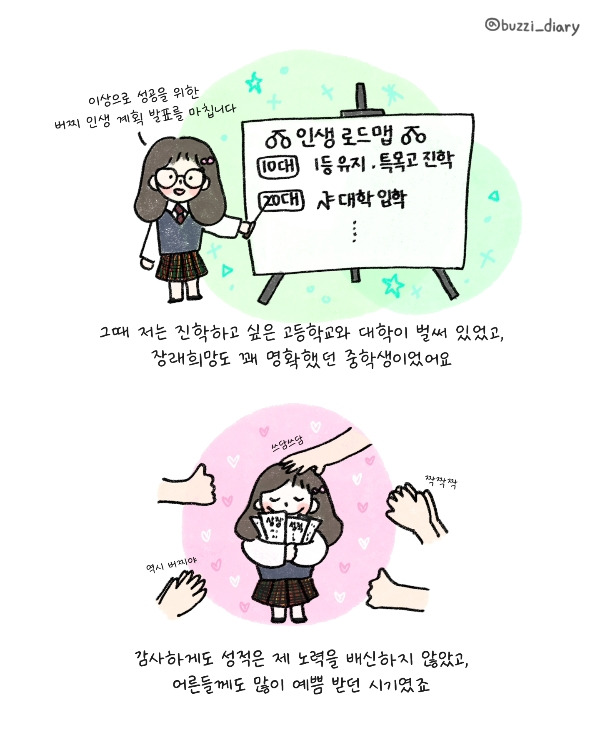 @buzzi_diary
이상으로 성공을 위한
버찌 인생 계획 발표를 마칩니다
인생 로드맵
10대 1등 유지 · 특목고 진학
20대 샤 대학 입학
그때 저는 진학하고 싶은 고등학교와 대학이 벌써 있었고,
장래희망도 꽤 명확했던 중학생이었어요
쓰담쓰담
짝짝짝
상장 성적
역시 버찌야
감사하게도 성적은 제 노력을 배신하지 않았고,
어른들께도 많이 예쁨 받던 시기였죠